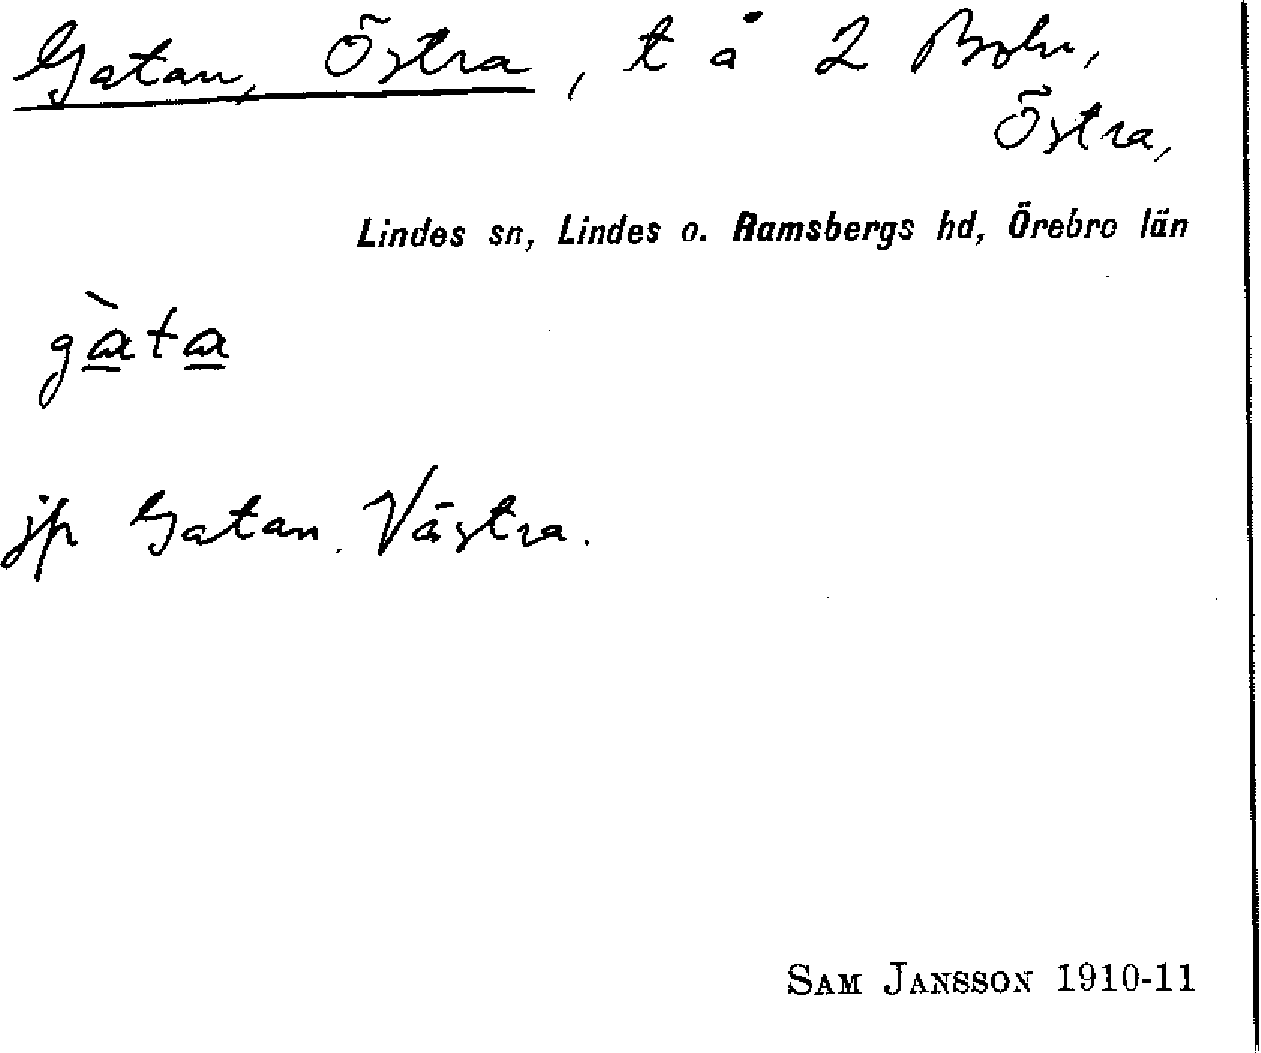 Gatan, Östra, t å 2 Bohr,
Östra,
Lindes sn, Lindes o. Ramsbergs hd, Örebro län
gàta
jfr Gatan. Västra.
SAM JANSSON 1910-11